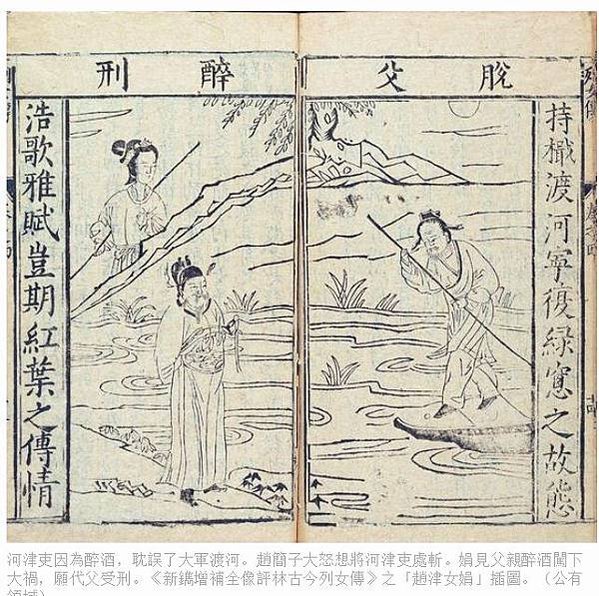 脫父醉刑
持檝渡河寧復綠窓之故態
浩歌雅賦豈期紅葉之傳情
河津吏因為醉酒，耽誤了大軍渡河。趙簡子大怒想將河津吏處斬。娟見父親醉酒闖下
大禍，願代父受刑。《新鐫增補全像評林古今列女傳》之「趙津女娟」插圖。（公有